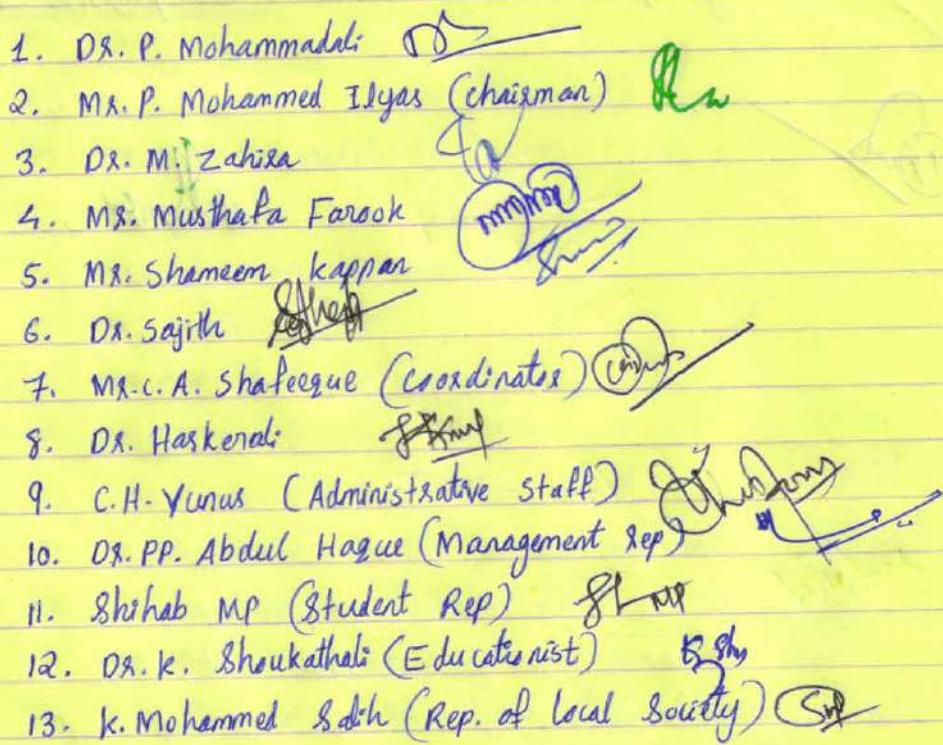 1. Dr. P. Mohammadali
2. Mr. P. Mohammed Ilyas (chairman)
3. Dr. M. Zahira
4. Mr. Musthafa Farook
5. Mr. Shameem kappan
6. Dr. Sajith
7. Mr. C. A. Shafeeque (Coordinator)
8. Dr. Haskerali
9. C.H. Yunus (Administrative Staff)
10. Dr. PP. Abdul Haque (Management rep)
11. Shihab MP (Student Rep) MP
12. Dr. K. Shoukathali (Educationist)
13. K. Mohammed Salih (Rep. of local Society)